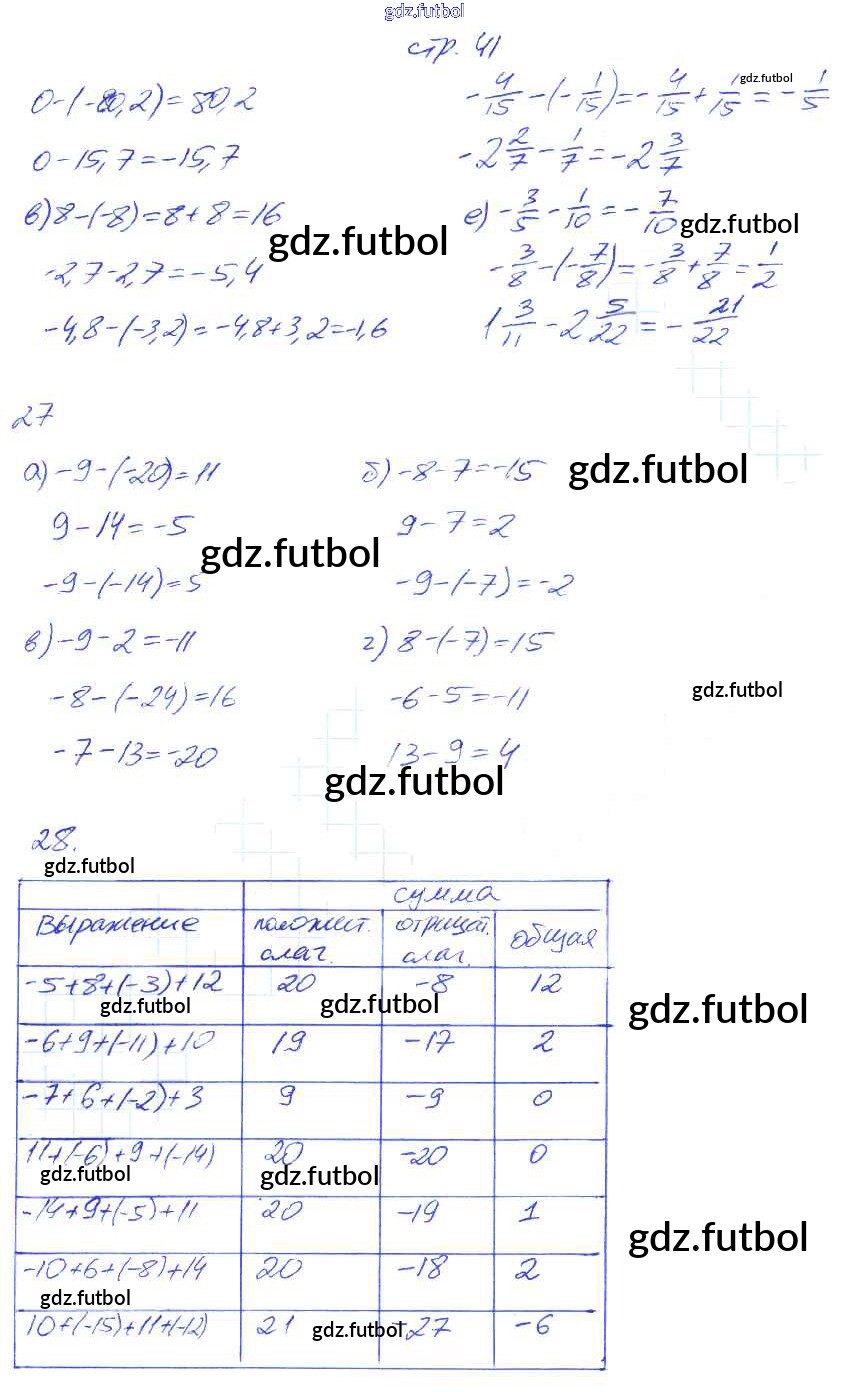 gdz.futbol
стр. 41
0-(-80,2)=80,2
0-15,7=-15,7
в) 8-(-8)=8+8=16
gdz.futbol
-2,7-2,7=-5,4
-4,8-(-3,2)=-4,8+3,2=-1,6
gdz.futbol
-4/15-(-1/15)=-4/15+1/15=-1/5
-2 2/7-1/7=-2 3/7
е) -3/5-1/10=-7/10
gdz.futbol
-3/8-(-7/8)=-3/8+7/8=1/2
1 3/11-2 5/22=-21/22
27
а) -9-(-20)=11
9-14=-5
gdz.futbol
-9-(-14)=5
б) -8-7=-15
gdz.futbol
9-7=2
-9-(-7)=-2
в) -9-2=-11
-8-(-24)=16
-7-13=-20
г) 8-(-7)=15
-6-5=-11
gdz.futbol
13-9=4
gdz.futbol
28.
gdz.futbol
сумма
Выражение положит. слаг. отрицат. слаг. общая
-5+8+(-3)+12 20 -8 12
gdz.futbol gdz.futbol gdz.futbol
-6+9+(-11)+10 19 -17 2
-7+6+(-2)+3 9 -9 0
11+(-6)+9+(-14) 20 -20 0
gdz.futbol gdz.futbol
-14+9+(-5)+11 20 -19 1
gdz.futbol
-10+6+(-8)+14 20 -18 2
gdz.futbol
10+(-15)+11+(-12) 21 -27 -6
gdz.futbol